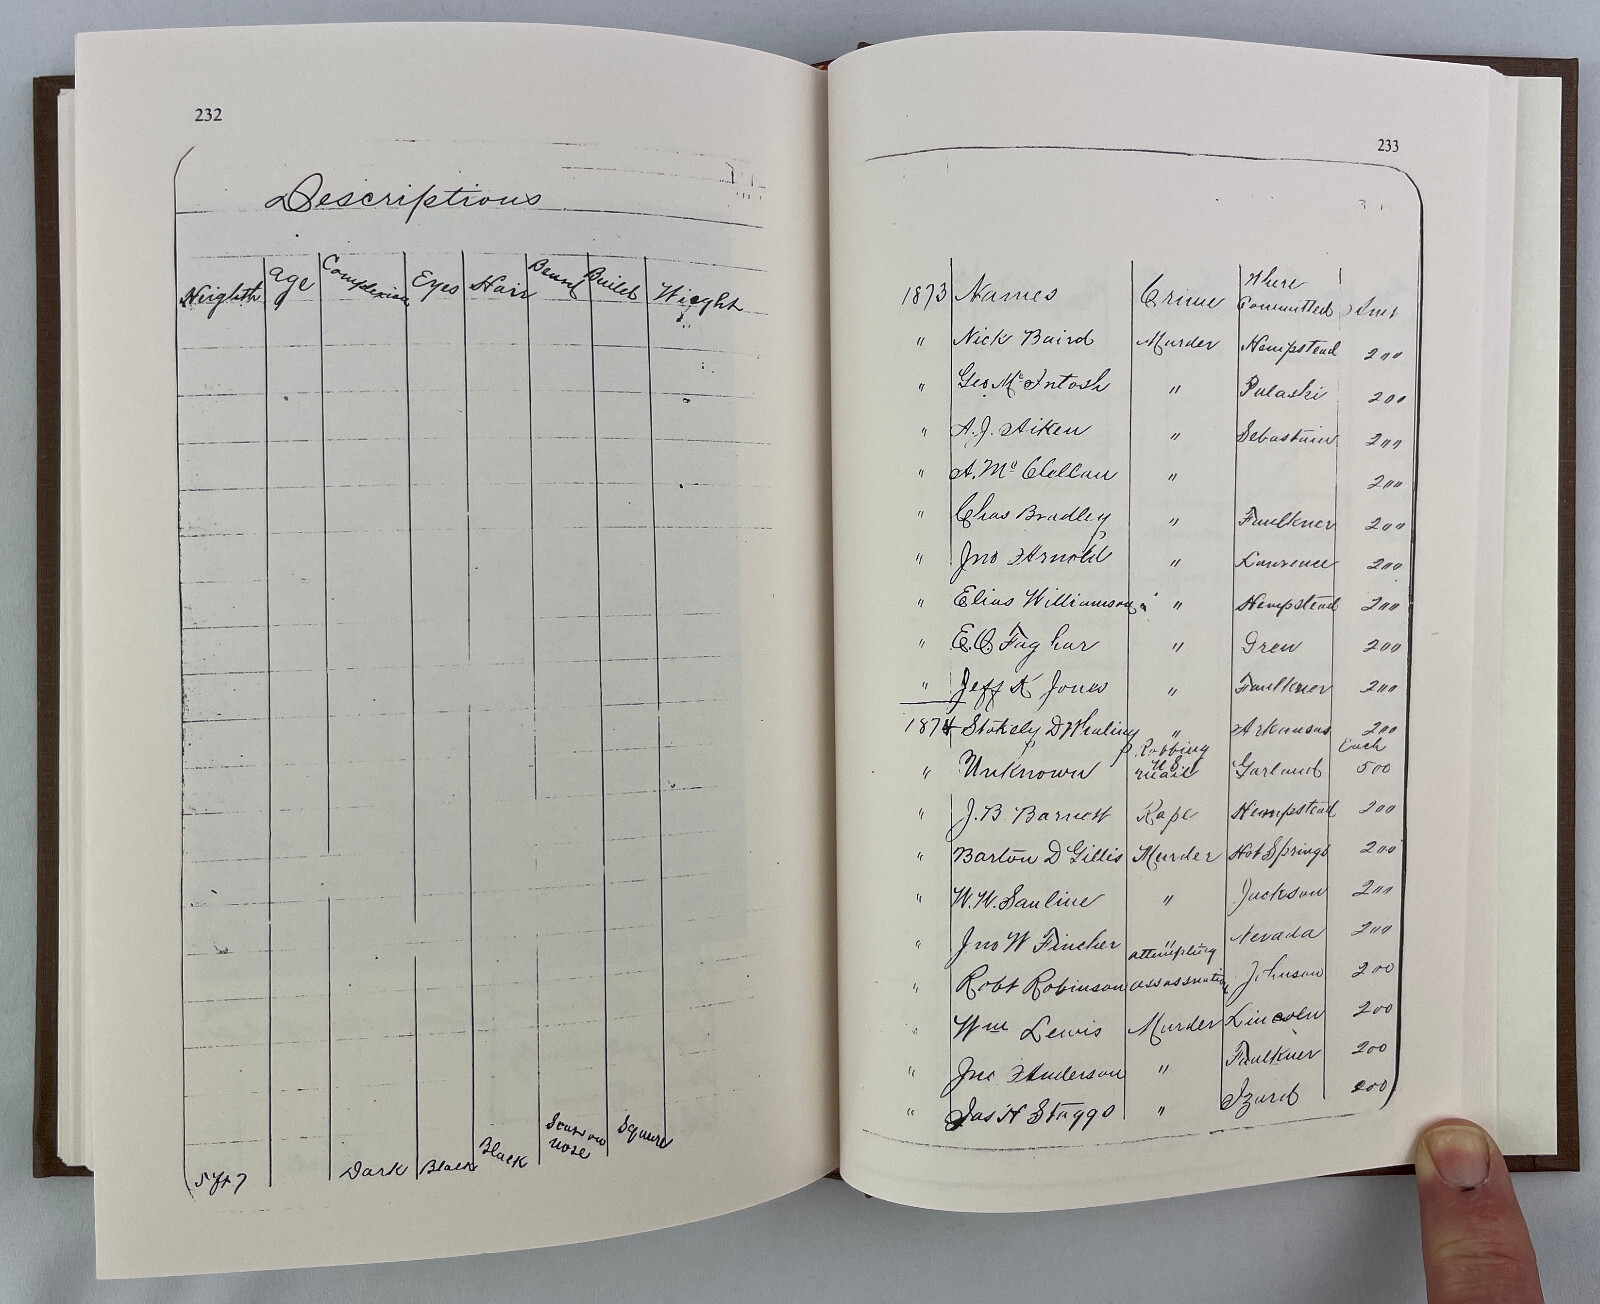 232
Descriptions
Heighth age Complexion Eyes Hair Beard Build Wieght
5 ft 7 Dark Black Black Scar on nose Square
233
1873 Names Crime Where Committed Amt
" Nick Baird Murder Hempstead 200
" Geo McIntosh " Pulaski 200
" A.J. Aiken " Sebastian 200
" A. McClellan " 200
" Chas Bradley " Faulkner 200
" Jno Arnold " Lawrence 200
" Elias Williamson " Hempstead 200
" E.C. " Drew 200
" Jeff K Jones " Faulkner 200
1874 Stokely D Whaling " Arkansas 200
" Unknown Robbing U.S. mail Garland Each 500
" J.B. Barnett Rape Hempstead 200
" Barton D Gillis Murder Hot Springs 200
" W.W. Sauline " Jackson 200
" Jno W Fincher " Nevada 200
" Robt Robinson attempting assassination Johnson 200
" Wm Lewis Murder Lincoln 200
" Jno Anderson " Faulkner 200
" Jas H Staggs " Izard 200